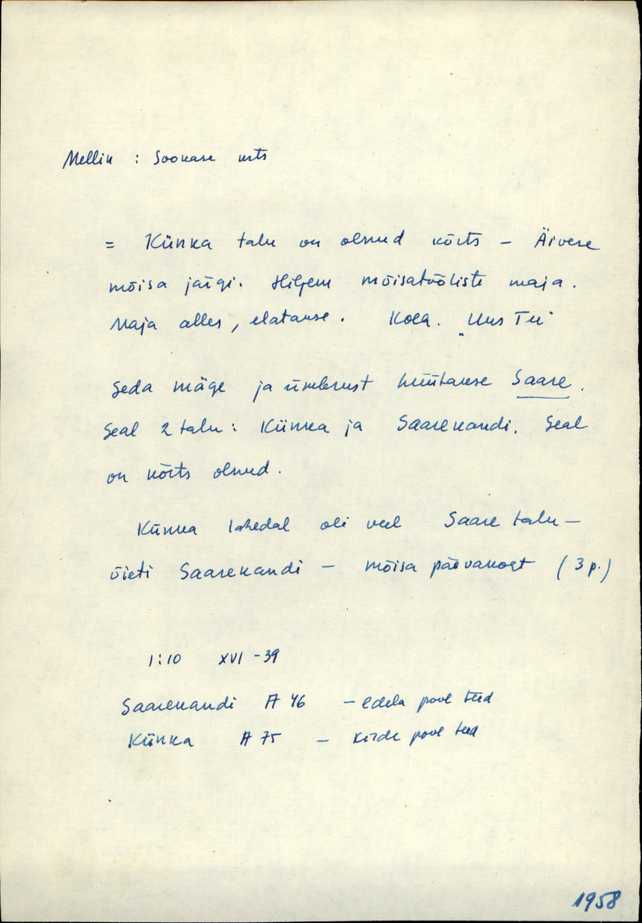 Mellin : Sookase krts
= Künka talu on olnud kõrts – Äivere
mõisa järgi. Hiljem mõisatööliste maja.
Maja alles, elatakse. Kolh. "Uus Tee"
Seda mäge ja ümbrust hüütakse Saare.
Seal 2 talu: Künka ja Saarekandi. Seal
on kõrts olnud.
Künka lähedal oli veel Saare talu –
viidi Saarekandi – mõisa päevakoht (3 p.)
1:10 XVI-39
Saarekandi A 46 – edela pool teed
Künka A 75 – kirde pool teed
1958